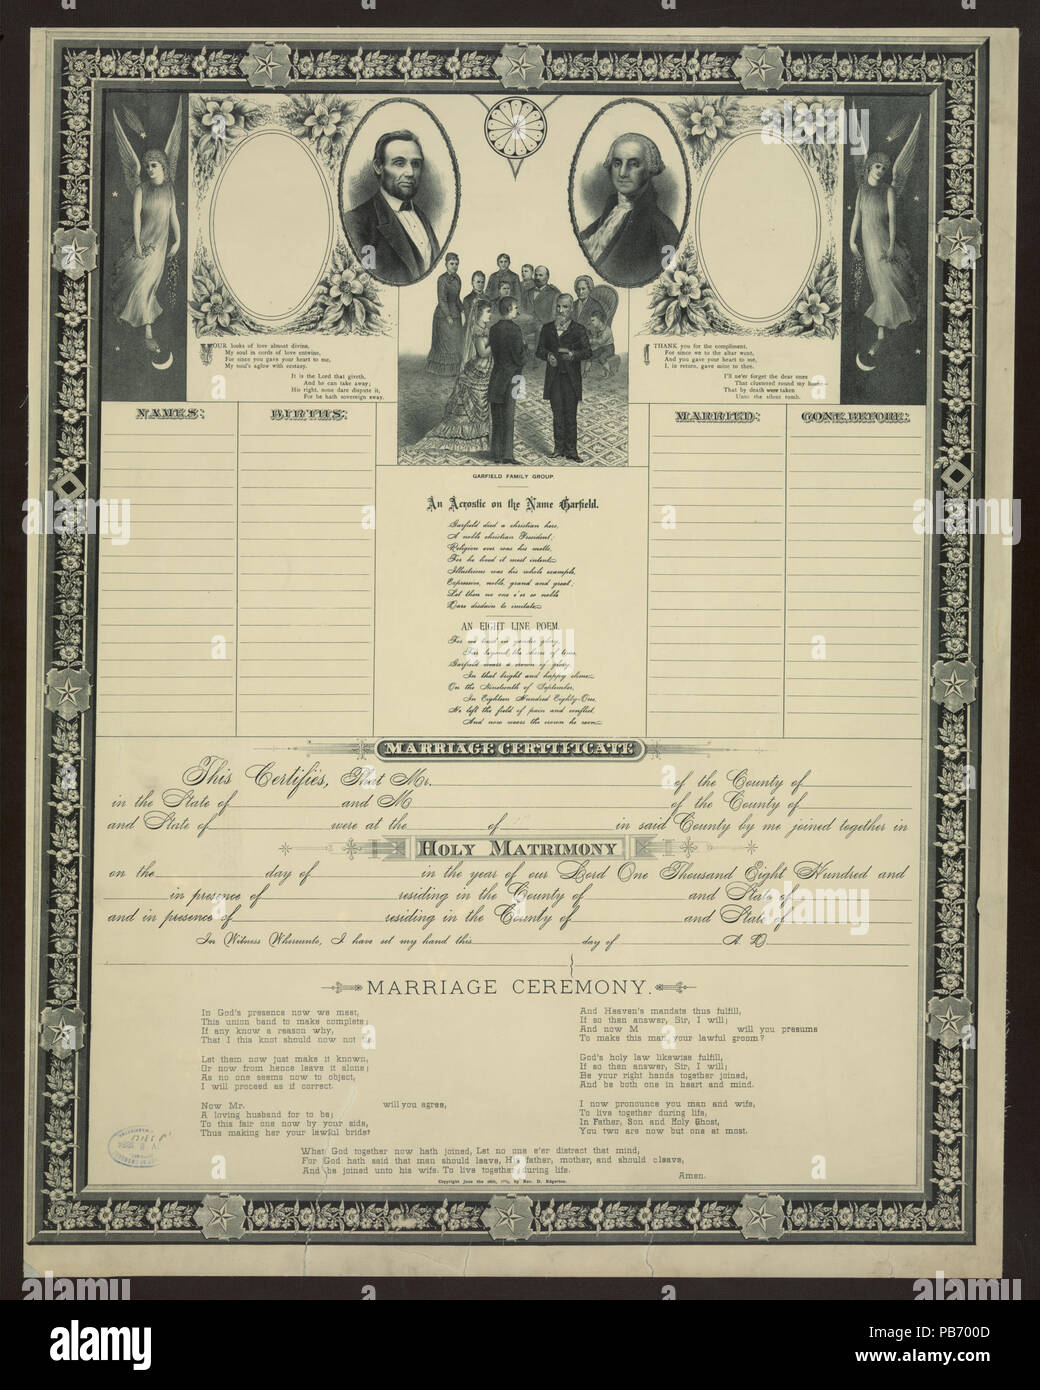 YOUR looks of love almost divine,
My soul in cords of love entwine,
For since you gave your heart to me,
My soul's aglow with ecstasy.
It is the Lord that giveth,
And he can take away;
His right, none dare dispute it,
For he hath sovereign sway.
I THANK you for the compliment,
For since we to the altar went,
And you gave your heart to me,
I, in return, gave mine to thee.
I'll ne'er forget the dear ones
That clustered round my home—
That by death were taken
Unto the silent tomb.
NAMES:
BIRTHS:
MARRIED:
GONE BEFORE:
GARFIELD FAMILY GROUP.
An Acrostic on the Name Garfield.
Garfield died a christian hero,
A noble christian President;
Religion ever was his motto,
For he lived it most intent;
Illustrious was his whole example,
Expressive, noble, grand and great;
Let then no one e'er so noble
Dare disdain to imitate.
AN EIGHT LINE POEM.
For we trust in yonder glory,
Far beyond the shores of time,
Garfield wears a crown of glory,
In that bright and happy clime.
On the Nineteenth of September,
In Eighteen Hundred Eighty-One,
He left the field of pain and conflict,
And now wears the crown he won.
MARRIAGE CERTIFICATE
This Certifies, That Mr. of the County of
in the State of and M of the County of
and State of were at the of in said County by me joined together in
HOLY MATRIMONY
on the day of in the year of our Lord One Thousand Eight Hundred and
in presence of residing in the County of and State of
and in presence of residing in the County of and State of
In Witness Whereunto, I have set my hand this day of A. D.
MARRIAGE CEREMONY.
In God's presence now we meet,
This union band to make complete;
If any know a reason why,
That I this knot should now not tie,
Let them now just make it known,
Or now from hence leave it alone;
As no one seems now to object,
I will proceed as if correct.
Now Mr. will you agree,
A loving husband for to be;
To this fair one now by your side,
Thus making her your lawful bride?
And Heaven's mandate thus fulfill,
If so then answer, Sir, I will;
And now M will you presume
To make this man your lawful groom?
God's holy law likewise fulfill,
If so then answer, Sir, I will;
Be your right hands together joined,
And be both one in heart and mind.
I now pronounce you man and wife,
To live together during life,
In Father, Son and Holy Ghost,
You two are now but one at most.
What God together now hath joined, Let no one e'er distract that mind,
For God hath said that man should leave, His father, mother, and should cleave,
And be joined unto his wife. To live together during life.
Amen.
by Rev. D. Edgerton.
alamy
Image ID: PB700D
www.alamy.com